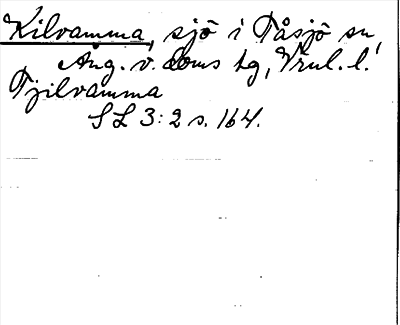 Kilvamma, sjö i Tåsjö sn,
Ång. v. doms hg, Vrnl. l.
Tjilvamma
SL 3:2 s. 164.